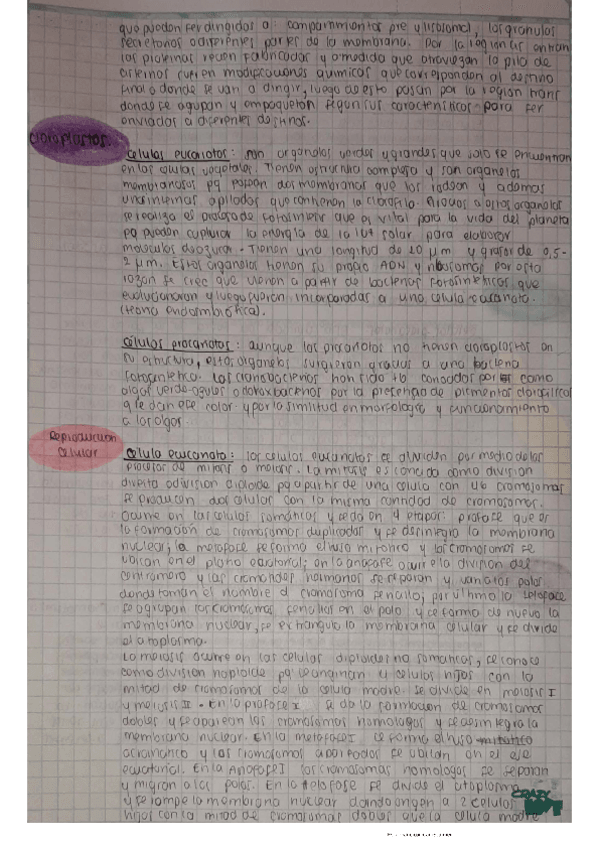 que puedan ser dirigidos a: compartimientos pre y lisosomal, los granulos
secretorios o diferentes partes de la membrana. Por la region cis entran
las proteinas recien fabricadas y a medida que atraviezan la pila de
cisternas sufren modificaciones quimicas que correspondan al destino
final a donde se van a dirigir, luego de esto pasan por la region trans
donde se agupan y empaquetan segun sus caracteristicas para ser
enviados a diferentes destinos.
Cloroplastos.
Celulas eucariotas: son organelos verdes y grandes que solo se encuentran
en las celulas vegetales. Tienen estructura compleja y son organelos
membranosos pq poseen dos membranas que los rodean y ademas
unas internas apiladas que contienen la clorofila. Gracias a estos organelos
se realiza el proceso de fotosintesis que es vital para la vida del planeta
pq puedan capturar la energia de la luz solar para elaborar
moleculas de azucar. Tienen una longitud de 20 µm y grosor de 0,5-
2 µm. Estos organelos tienen su propio ADN y ribosomas por esta
razon se cree que vienen a partir de bacterias fotosinteticas que
evolucionaron y luego fueron incorporadas a una celula eucariota.
(teoria endosimbiotica).
Celulas procariotas: aunque las procariotas no tienen cloroplastos en
su estructura, estos organelos surgieron gracias a una bacteria
fotosintetica. Las cianobacterias han sido conocidas por como
algas verde-azules o cloroxibacterias por la presencia de pigmentos clorofilicos
q le dan ese color y por la similitud en morfologia y funcionamiento
a las algas.
Reproduccion
celular
Celula eucariota: las celulas eucariotas se dividen por medio de los
procesos de mitosis o meiosis. La mitosis es conocida como division
directa o division diploide pq a partir de una celula con 46 cromosomas
se producen dos celulas con la misma cantidad de cromosomas.
Ocurre en las celulas somáticas y se da en 4 etapas: profase que es
la formacion de cromosomas duplicados y se desintegra la membrana
nuclear; la metafase se forma el huso mitotico y los cromosomas se
ubican en el plano ecuatorial; en la anafase ocurre la division del
centromero y las cromatides hermanas se separan y van a los polos
donde toman el nombre d cromosoma sencillo; por ultimo la telofase
se agrupan los cromosomas sencillos en el polo y se forma de nuevo la
membrana nuclear, se extrangula la membrana celular y se divide
el citoplasma.
La meiosis ocurre en las celulas diploides no somaticas, se conoce
como division haploide pq se originan 4 celulas hijas con la
mitad de cromosomas de la celula madre. Se divide en meiosis I
y meiosis II. En la profase I se da la formacion de cromosomas
dobles y se aparean los cromosomas homologos y se desintegra la
membrana nuclear. En la metafase I se forma el huso mitotico
acromatico y los cromosomas apareados se ubican en el eje
ecuatorial. En la Anafase I los cromosomas homologos se separan
y migran a los polos. En la telofase se divide el citoplasma
y se rompe la membrana nuclear dando origen a 2 celulas
hijas con la mitad de cromosomas dobles que la celula madre
CRAZY